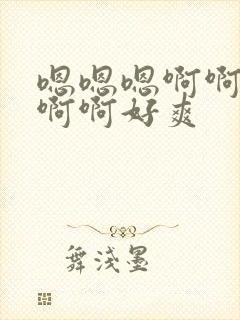 嗯嗯嗯啊啊
啊啊好爽
舞淺墨